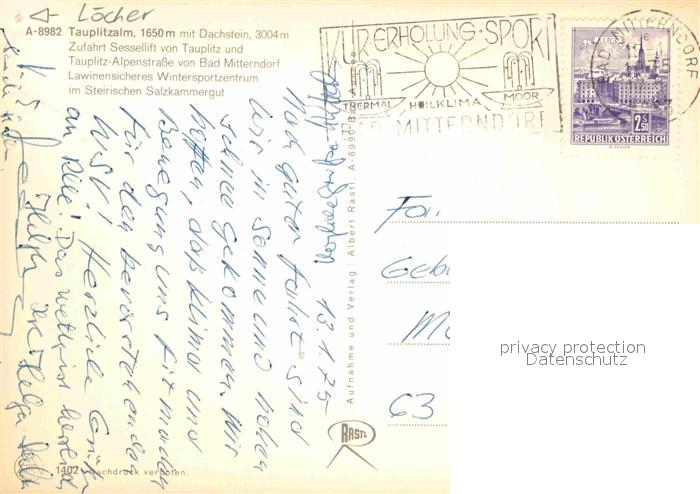 Löcher
A-8982 Tauplitzalm, 1650 m mit Dachstein, 3004 m
Zufahrt Sessellift von Tauplitz und
Tauplitz-Alpenstraße von Bad Mitterndorf
Lawinensicheres Wintersportzentrum
im Steirischen Salzkammergut
KUR·ERHOLUNG·SPORT
THERMAL HEILKLIMA MOOR
BAD MITTERNDORF
BAD MITTERNDORF
2.50
REPUBLIK ÖSTERREICH
13.1.75
Nach guter Fahrt sind
wir in Sonne und
Schnee gekommen. Wir
hoffen, daß Klima und
Bewegung uns fit machen
für den bevorstehenden
WSV! Herzliche Grüße
an alle! Das Wetter ist
Ihre Helga
Aufnahme und Verlag: Albert Rastl, A-8990 Bad Aussee
Fa.
Geb
63
privacy protection
Datenschutz
RASTL
1402 Nachdruck verboten.